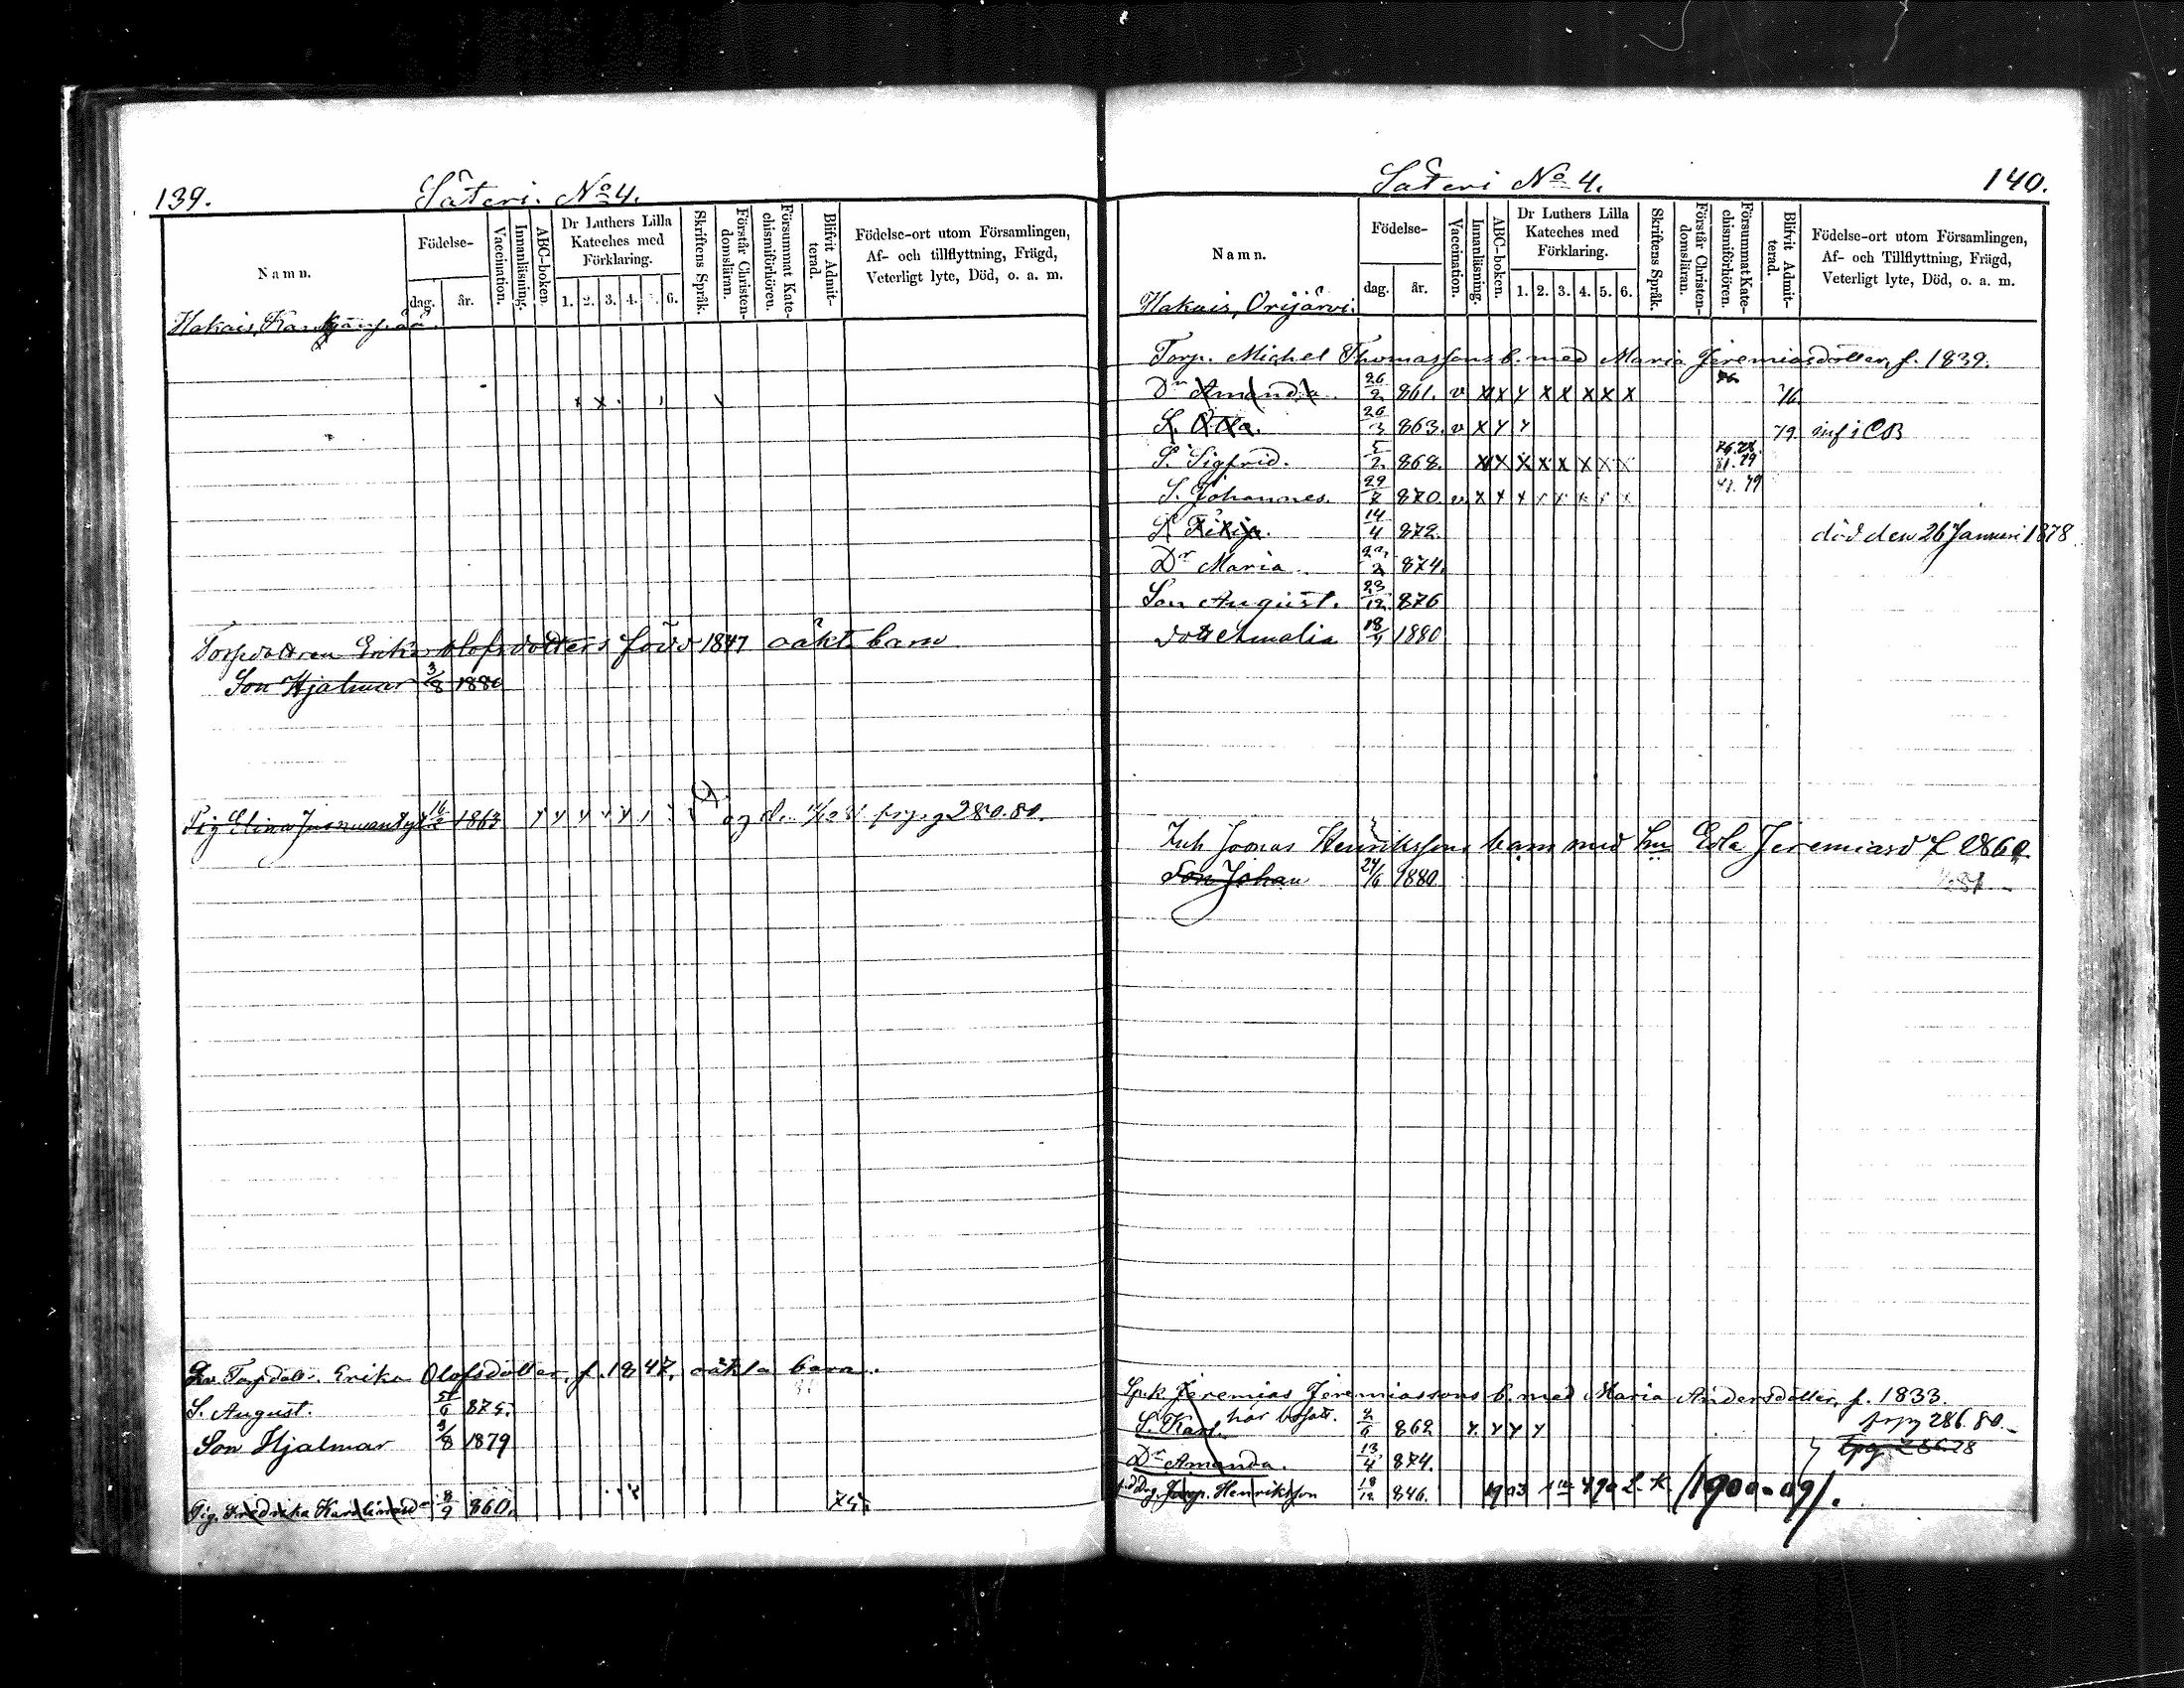 139. Säteri. No 4.
Namn.
Födelse-
dag.
år.
Vaccination.
Innanläsning.
ABC-boken.
Dr Luthers Lilla
Kateches med
Förklaring.
1. 2. 3. 4. 6.
Skriftens Språk.
Förstår Christen-
domsläran.
Försummat Kate-
chismiförhören.
Blifvit Admit-
terad.
Födelse-ort utom Församlingen,
Af- och tillflyttning, Frägd,
Veterligt lyte, Död, o. a. m.
Hakais,
Olofsdotters född 1847 oäkt. barn
Son Hjalmar 3/8 1880
Pig Elina 16/2 1863 280.80.
Torpdotr. Erika Olofsdotter, f. 1847, oäkta barn.
S. August. 5/6 875.
Son Hjalmar 3/8 1879
Pig. Fredrika 8/9 860.
Säteri No 4. 140.
Namn.
Födelse-
dag.
år.
Vaccination.
Innanläsning.
ABC-boken.
Dr Luthers Lilla
Kateches med
Förklaring.
1. 2. 3. 4. 5. 6.
Skriftens Språk.
Förstår Christen-
domsläran.
Försummat Kate-
chismiförhören.
Blifvit Admit-
terad.
Födelse-ort utom Församlingen,
Af- och Tillflyttning, Frägd,
Veterligt lyte, Död, o. a. m.
Hakais, Orijärvi.
Torp. Michel Thomassons b. med Maria Jeremiasdotter, f. 1839.
Dr Amanda. 26/2 861. v x x y x x x x x 76.
S. 26/3 863. v x y y 79. inf i CB
S. Sigfrid. 5/2 868. x x x x x x x x 81. 79
S. Johannes. 29/7 870. v. x x x x x x x x 79
14/4 872. död den 26 Januari 1878
Dr Maria. 874.
Son August. 23/12 876
dotr Amalia 18/4 1880
Inh Joonas Henrikssons barn med hu Eola Jeremiasd f. 1860
Son Johan 24/6 1880
Spk Jeremias Jeremiassons b. med Maria Andersdotter, f. 1833.
S. Karl. har bosatt. 2/6 862 y. y y y 286.80.
Dr Amanda. 13/4 874.
Henriksson 18/12 846. 1903 490 L. K. /1900-09/.